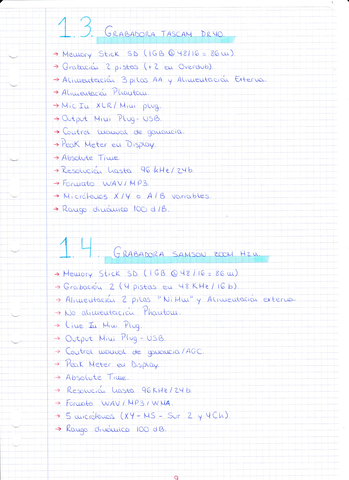 1.3. GRABADORA TASCAM DR40
→ Memory Stick SD (1GB @ 48/16 = 86m)
→ Grabación 2 pistas (+2 en Overdub).
→ Alimentación 3 pilas AA y Alimentación Externa.
→ Alimentación Phantom.
→ Mic In XLR/Mini plug.
→ Output Mini Plug - USB.
→ Control manual de ganancia.
→ Peak Meter en Display.
→ Absolute Time.
→ Resolución hasta 96 KHz/24b.
→ Formato WAV/MP3.
→ Micrófonos X/Y o A/B variables.
→ Rango dinámico 100 d/B.
1.4. GRABADORA SAMSON ZOOM H2N.
→ Memory Stick SD (1GB @ 48/16 = 86m)
→ Grabación 2 (4 pistas en 48 KHz/16b).
→ Alimentación 2 pilas "NiHm" y Alimentación externa.
→ No alimentación Phantom.
→ Line In Mini Plug.
→ Output Mini Plug - USB.
→ Control manual de ganancia/AGC.
→ Peak Meter en Display.
→ Absolute Time.
→ Resolución hasta 96KHz/24b.
→ Formato WAV/MP3/WMA.
→ 5 micrófonos (XY-MS- Sur 2 y 4Ch).
→ Rango dinámico 100 dB.